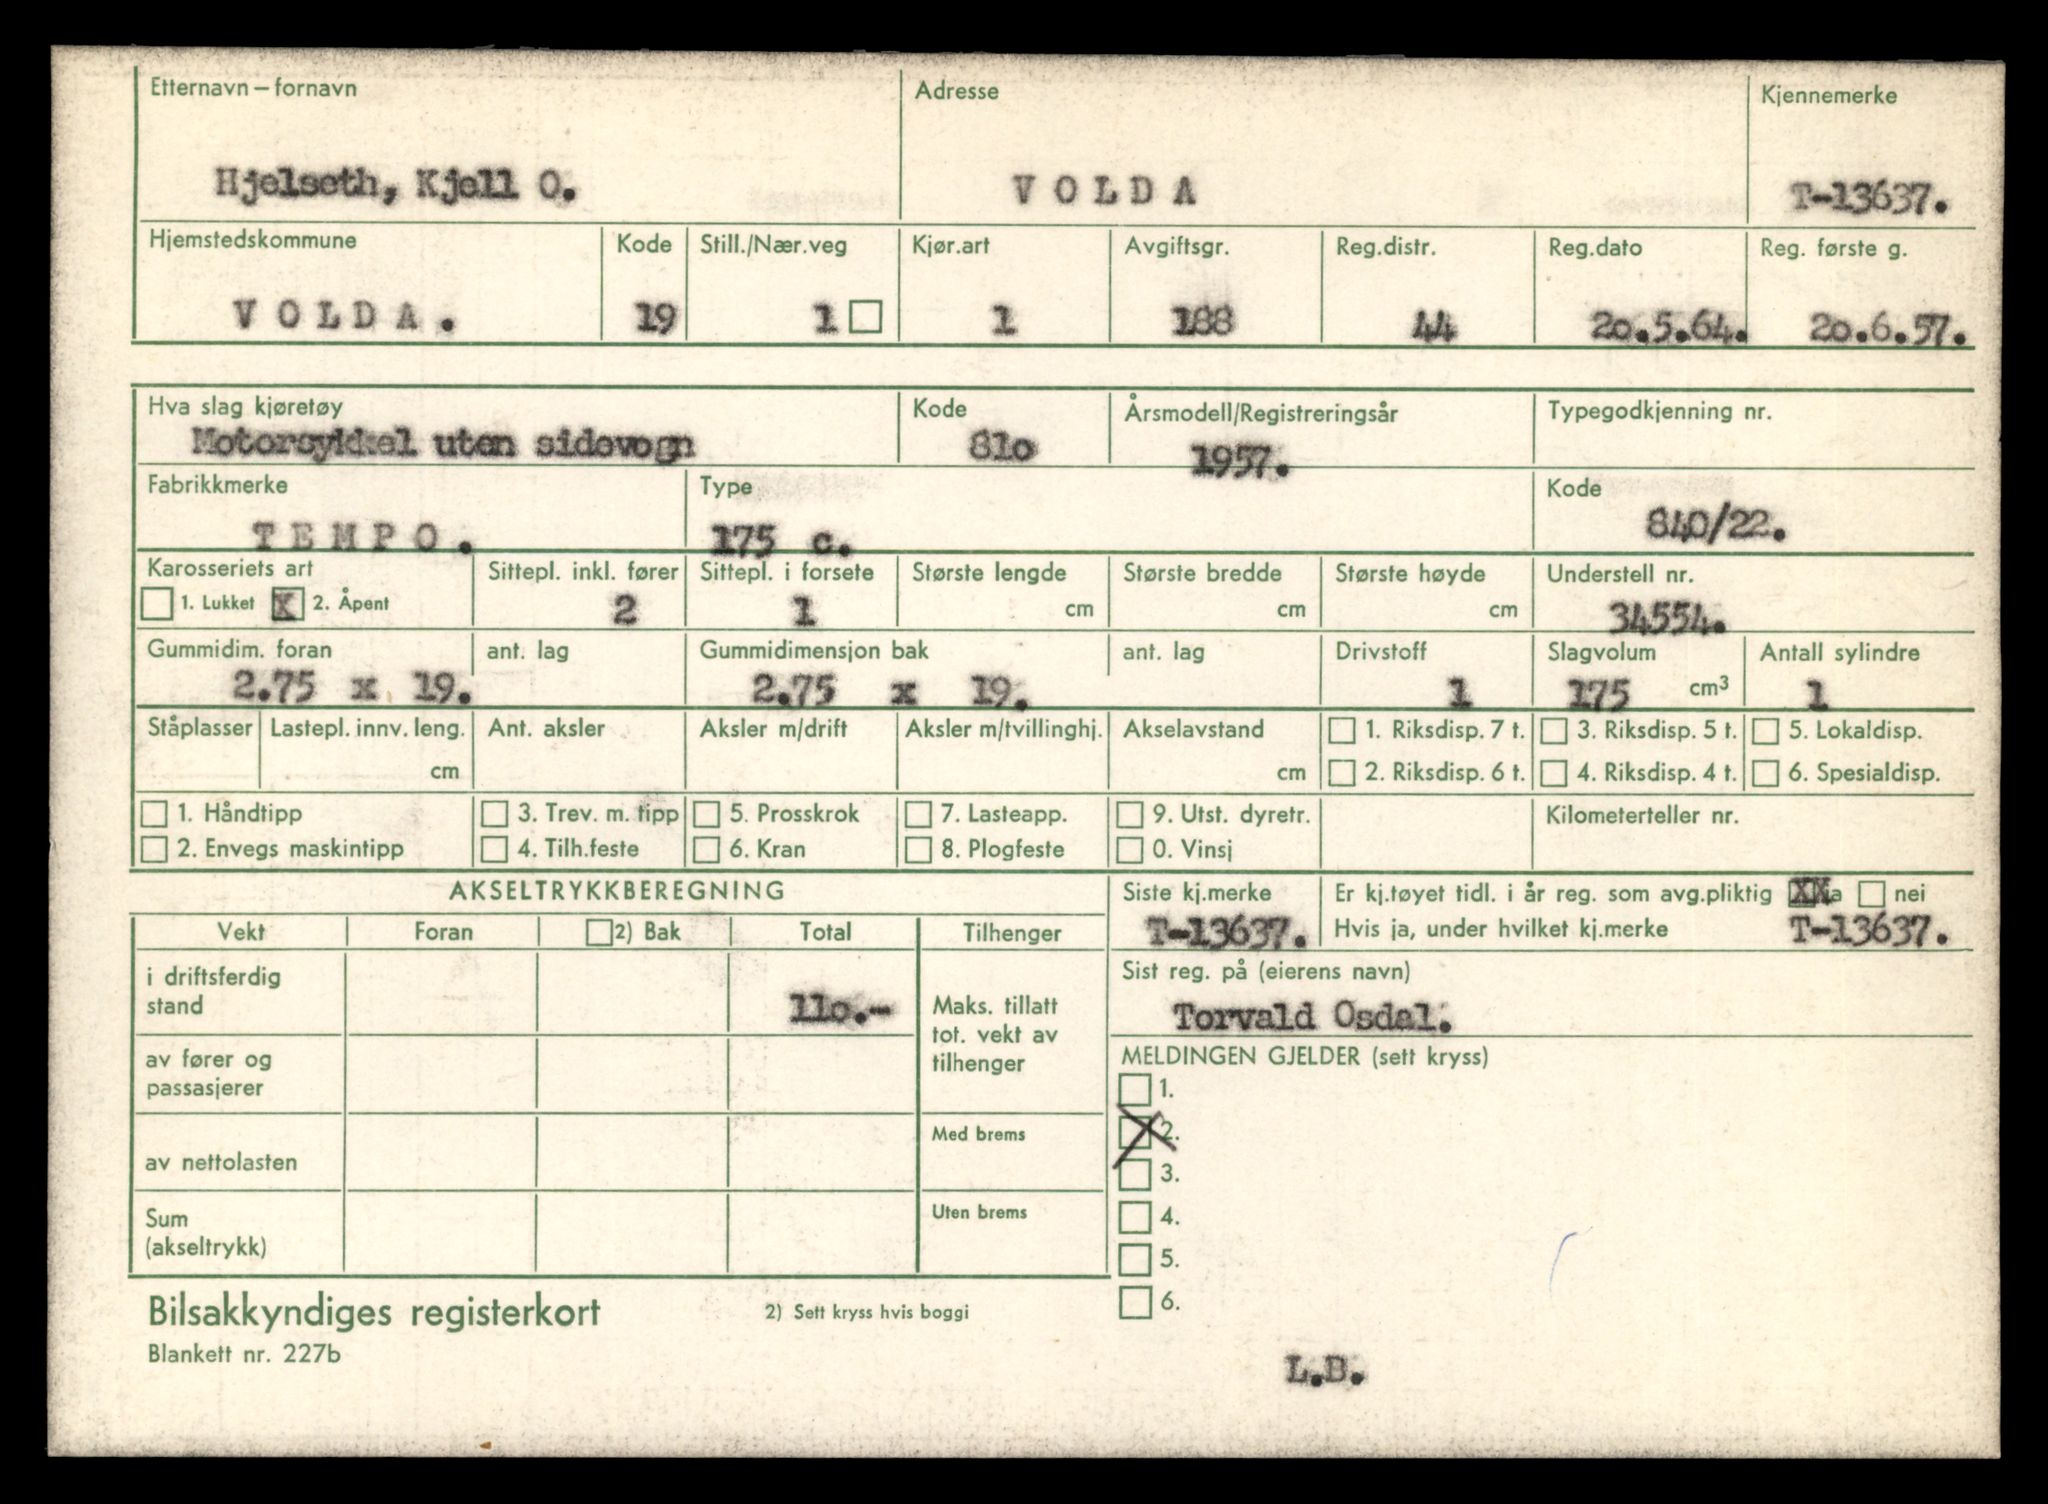 Etternavn – fornavn Adresse Kjennemerke
Hjelseth, Kjell O. VOLDA T-13637.
Hjemstedskommune Kode Still./Nær.veg Kjør.art Avgiftsgr. Reg.distr. Reg.dato Reg. første g.
VOLDA. 19 1 1 188 44 20.5.64. 20.6.57.
Hva slag kjøretøy Kode Årsmodell/Registreringsår Typegodkjenning nr.
Motorsykkel uten sidevogn 810 1957.
Fabrikkmerke Type Kode
TEMPO. 175 c. 840/22.
Karosseriets art Sittepl. inkl. fører Sittepl. i forsete Største lengde Største bredde Største høyde Understell nr.
1. Lukket X 2. Åpent 2 1 cm cm cm 34554.
Gummidim. foran ant. lag Gummidimensjon bak ant. lag Drivstoff Slagvolum Antall sylindre
2.75 x 19. 2.75 x 19. 1 175 cm³ 1
Ståplasser Lastepl. innv. leng. Ant. aksler Aksler m/drift Aksler m/tvillinghj. Akselavstand 1. Riksdisp. 7 t. 3. Riksdisp. 5 t. 5. Lokaldisp.
cm cm 2. Riksdisp. 6 t. 4. Riksdisp. 4 t. 6. Spesialdisp.
1. Håndtipp 3. Trev. m. tipp 5. Prosskrok 7. Lasteapp. 9. Utst. dyretr. Kilometerteller nr.
2. Envegs maskintipp 4. Tilh.feste 6. Kran 8. Plogfeste 0. Vinsj
AKSELTRYKKBEREGNING Siste kj.merke Er kj.tøyet tidl. i år reg. som avg.pliktig XXa nei
Vekt Foran 2) Bak Total Tilhenger T-13637. Hvis ja, under hvilket kj.merke T-13637.
i driftsferdig Sist reg. på (eierens navn)
stand 110.- Maks. tillatt Torvald Osdal.
tot. vekt av
av fører og tilhenger MELDINGEN GJELDER (sett kryss)
passasjerer 1.
Med brems X 2.
av nettolasten 3.
Sum Uten brems 4.
(akseltrykk) 5.
Bilsakkyndiges registerkort 2) Sett kryss hvis boggi 6.
Blankett nr. 227b
L.B.